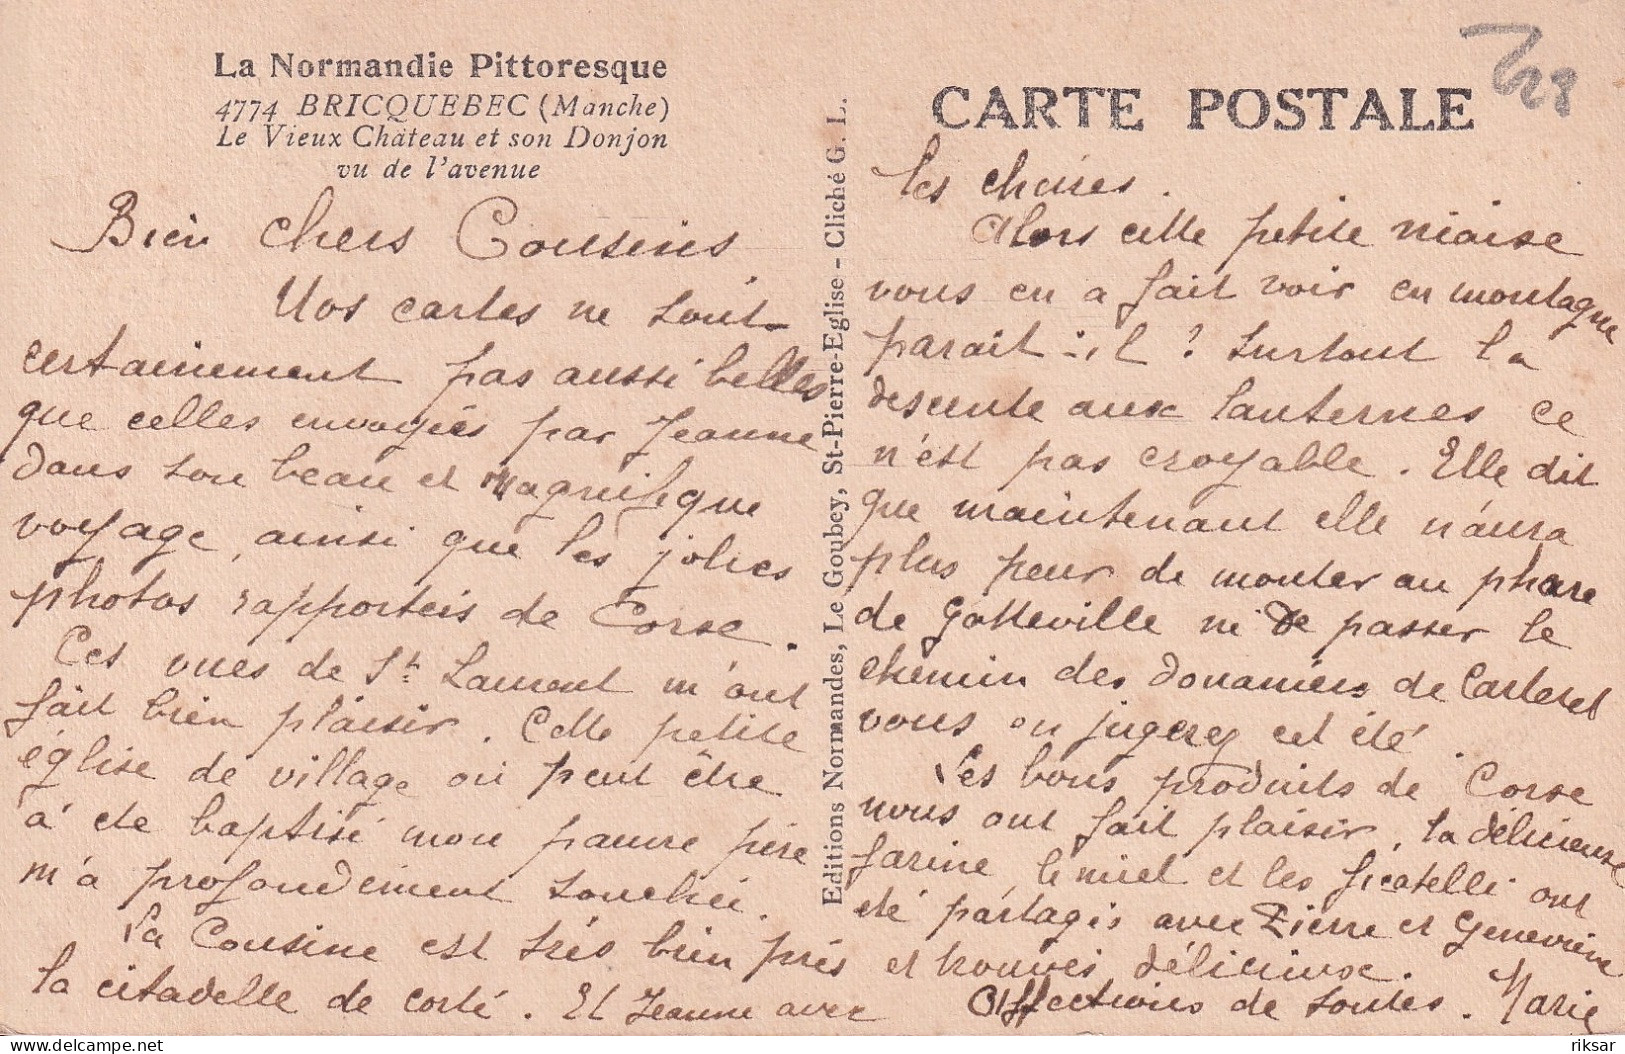 La Normandie Pittoresque
4774 BRICQUEBEC (Manche)
Le Vieux Château et son Donjon
vu de l'avenue
Bien chers Cousins
Nos cartes ne sont
certainement pas aussi belles
que celles envoyées par Jeanne
dans son beau et magnifique
voyage, ainsi que les jolies
photos rapportées de Corse.
Ces vues de St Laurent m'ont
fait bien plaisir. Cette petite
église de village où peut être
a été baptisé mon pauvre père
m'a profondément touchée.
La Cousine est très bien près
la citadelle de corté. Et Jeanne avec
Editions Normandes, Le Goubey, St-Pierre-Eglise - Cliché G. L.
CARTE POSTALE
les chaises.
Alors cette petite niaise
vous en a fait voir en montagne
parait-il ? surtout la
descente aux lanternes ce
n'est pas croyable. Elle dit
que maintenant elle n'aura
plus peur de monter au phare
de Gatteville ni de passer le
chemin des douaniers de Carteret
vous en jugerez cet été.
Les bons produits de Corse
nous ont fait plaisir, la délicieuse
farine, le miel et les ficatelli ont
été partagés avec Pierre et Geneviève
et trouvés délicieux.
Affections de toutes. Marie
riksar